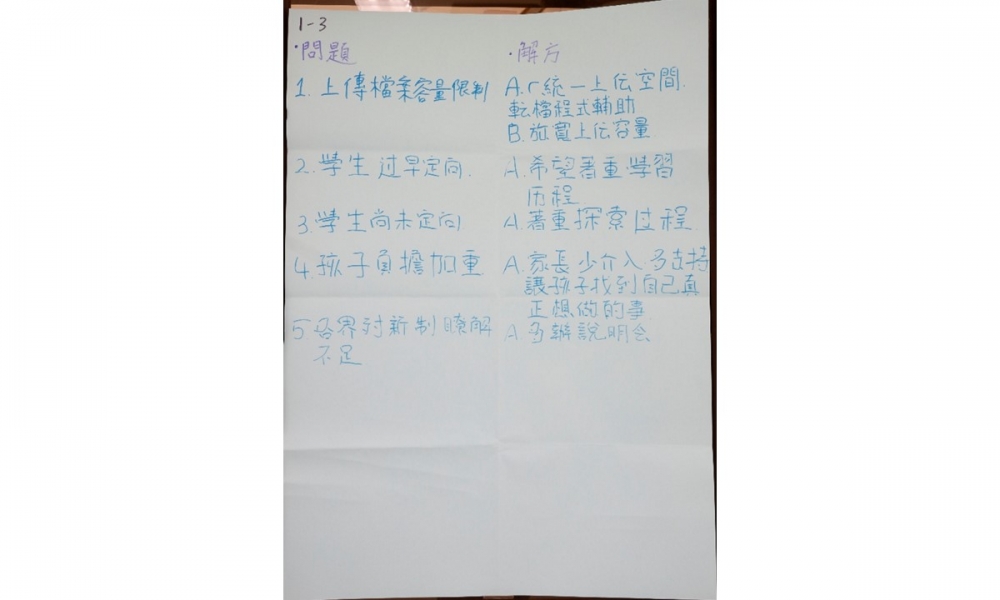 1-3
·問題
·解方
1. 上傳檔案容量限制
A. 統一上伝空間.
転檔程式輔助
B. 放寬上伝容量
2. 學生过早定向.
A. 希望著重學習
历程
3. 學生尚未定向
A. 著重探索过程
4. 孩子負擔加重
A. 家長少介入多支持
讓孩子找到自己真
正想做的事
5 各界对新制瞭解
不足
A. 多辦說明会